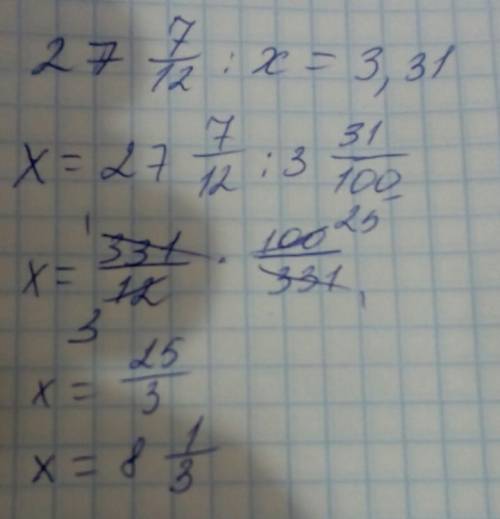 27 7/12 : x = 3,31
x = 27 7/12 : 3 31/100
x = 331/12 · 100/331 1 3 25 1
x = 25/3
x = 8 1/3